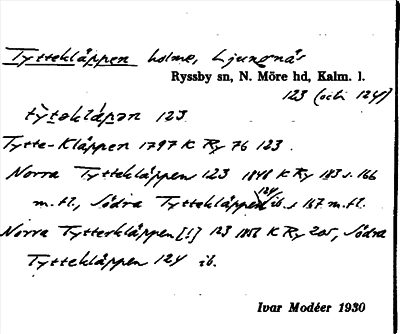 Tyttekläppen holme, Ljungnäs
Ryssby sn, N. Möre hd, Kalm. l.
123 (och 124)
tỳtəklápən 123
Tytte-Kläppen 1797 K Ry 76 123.
Norra Tyttekläppen 123 1848 K Ry 183 s. 166
m.fl., Södra Tyttekläppen 124 ib. s 167 m.fl.
Norra Tytterkläppen [!] 123 1858 K Ry 205, Södra
Tyttekläppen 124 ib.
Ivar Modéer 1930